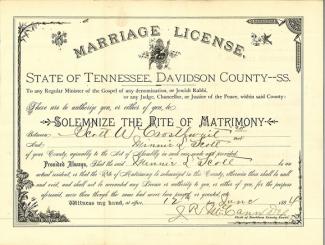 MARRIAGE LICENSE.
STATE OF TENNESSEE, DAVIDSON COUNTY--SS.
To any Regular Minister of the Gospel of any denomination, or Jewish Rabbi,
or any Judge, Chancellor, or Justice of the Peace, within said County:
These are to authorize you, or either of you, to
SOLEMNIZE THE RITE OF MATRIMONY
Between Scott W Crosthwait
And Minnie L Scott
of your County, agreeably to the Act of Assembly in such case made and provided
Provided Always, That the said Minnie L Scott is an
actual resident, so that the Rite of Matrimony be solemnized in the County, otherwise these shall be null
and void, and shall not be accounted any License or authority to you, or either of you, for the purpose
aforesaid, more than though the same had never been prayed or granted.
Witness my hand, at office, 12 June
J. R. McCann